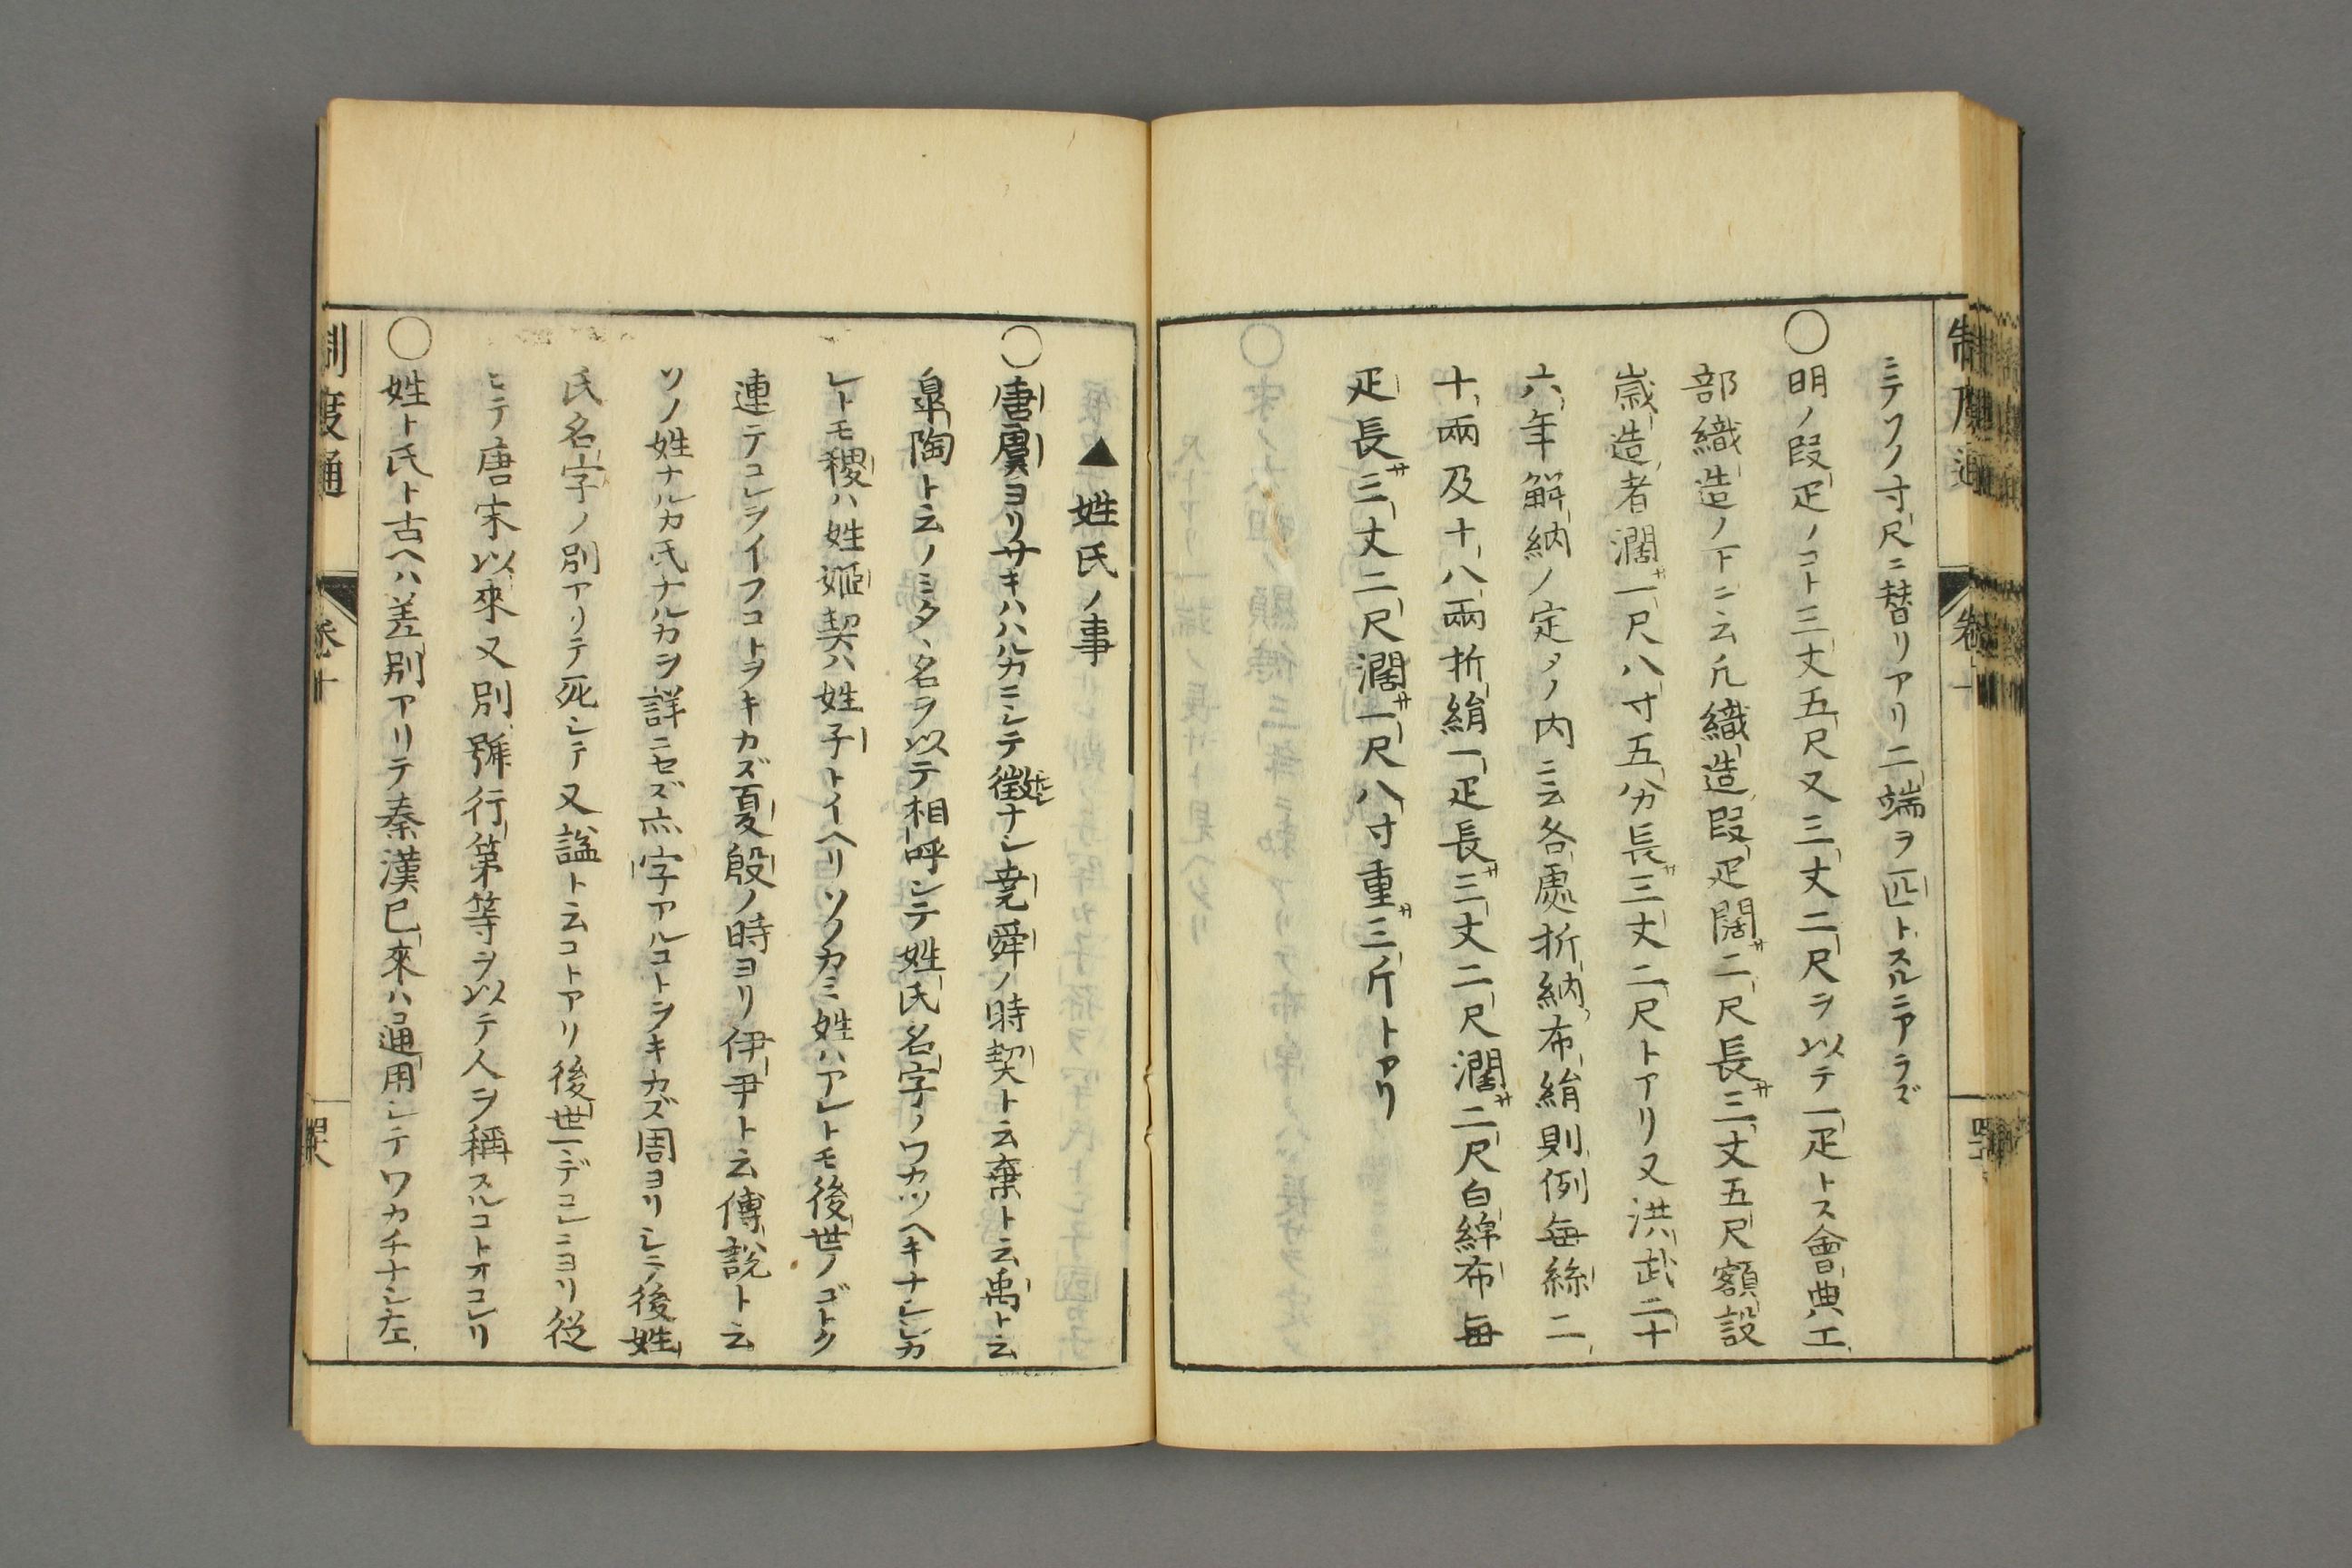 ニテワノ寸尺ニ替リアリ二端ヲ匹トスルニアラズ
○明ノ段疋ノコト三丈五尺又三丈二尺ヲ以テ一疋トス會典工
部織造ノ下ニ云凡織造段疋闊サ二尺長サ三丈五尺額設
歳造者濶サ一尺八寸五分長サ三丈二尺トアリ又洪武二十
六年解納ノ定メノ内ニ云各處折納布絹則例毎絲二
十兩及十八兩折絹一疋長サ三丈二尺濶サ二尺白綿布毎
疋長サ三丈二尺濶サ一尺八寸重サ三斤トアリ
▲姓氏ノ事
○唐虞ヨリサキハハルカニシテ徴ナシ堯舜ノ時契ト云棄ト云禹ト云
皐陶ト云ノミタヽ名ヲ以テ相呼シテ姓氏名字ノワカツヘキナシシカ
レトモ稷ハ姓姬契ハ姓子トイヘリソノカミ姓ハアレトモ後世ノゴトク
連テコレヲイフコトヲキカズ夏殷ノ時ヨリ伊尹ト云傅說ト云
ソノ姓ナルカ氏ナルカヲ詳ニセズ亦字アルコトヲキカズ周ヨリシテ後姓
氏名字ノ別アリテ死シテ又諡ト云コトアリ後世マデコレニヨリ從
ヒテ唐宋以來又別號行第等ヲ以テ人ヲ稱スルコトオコレリ
○姓ト氏ト古ヘハ差別アリテ秦漢已來ハ通用シテワカチナシ左
制度通
卷十